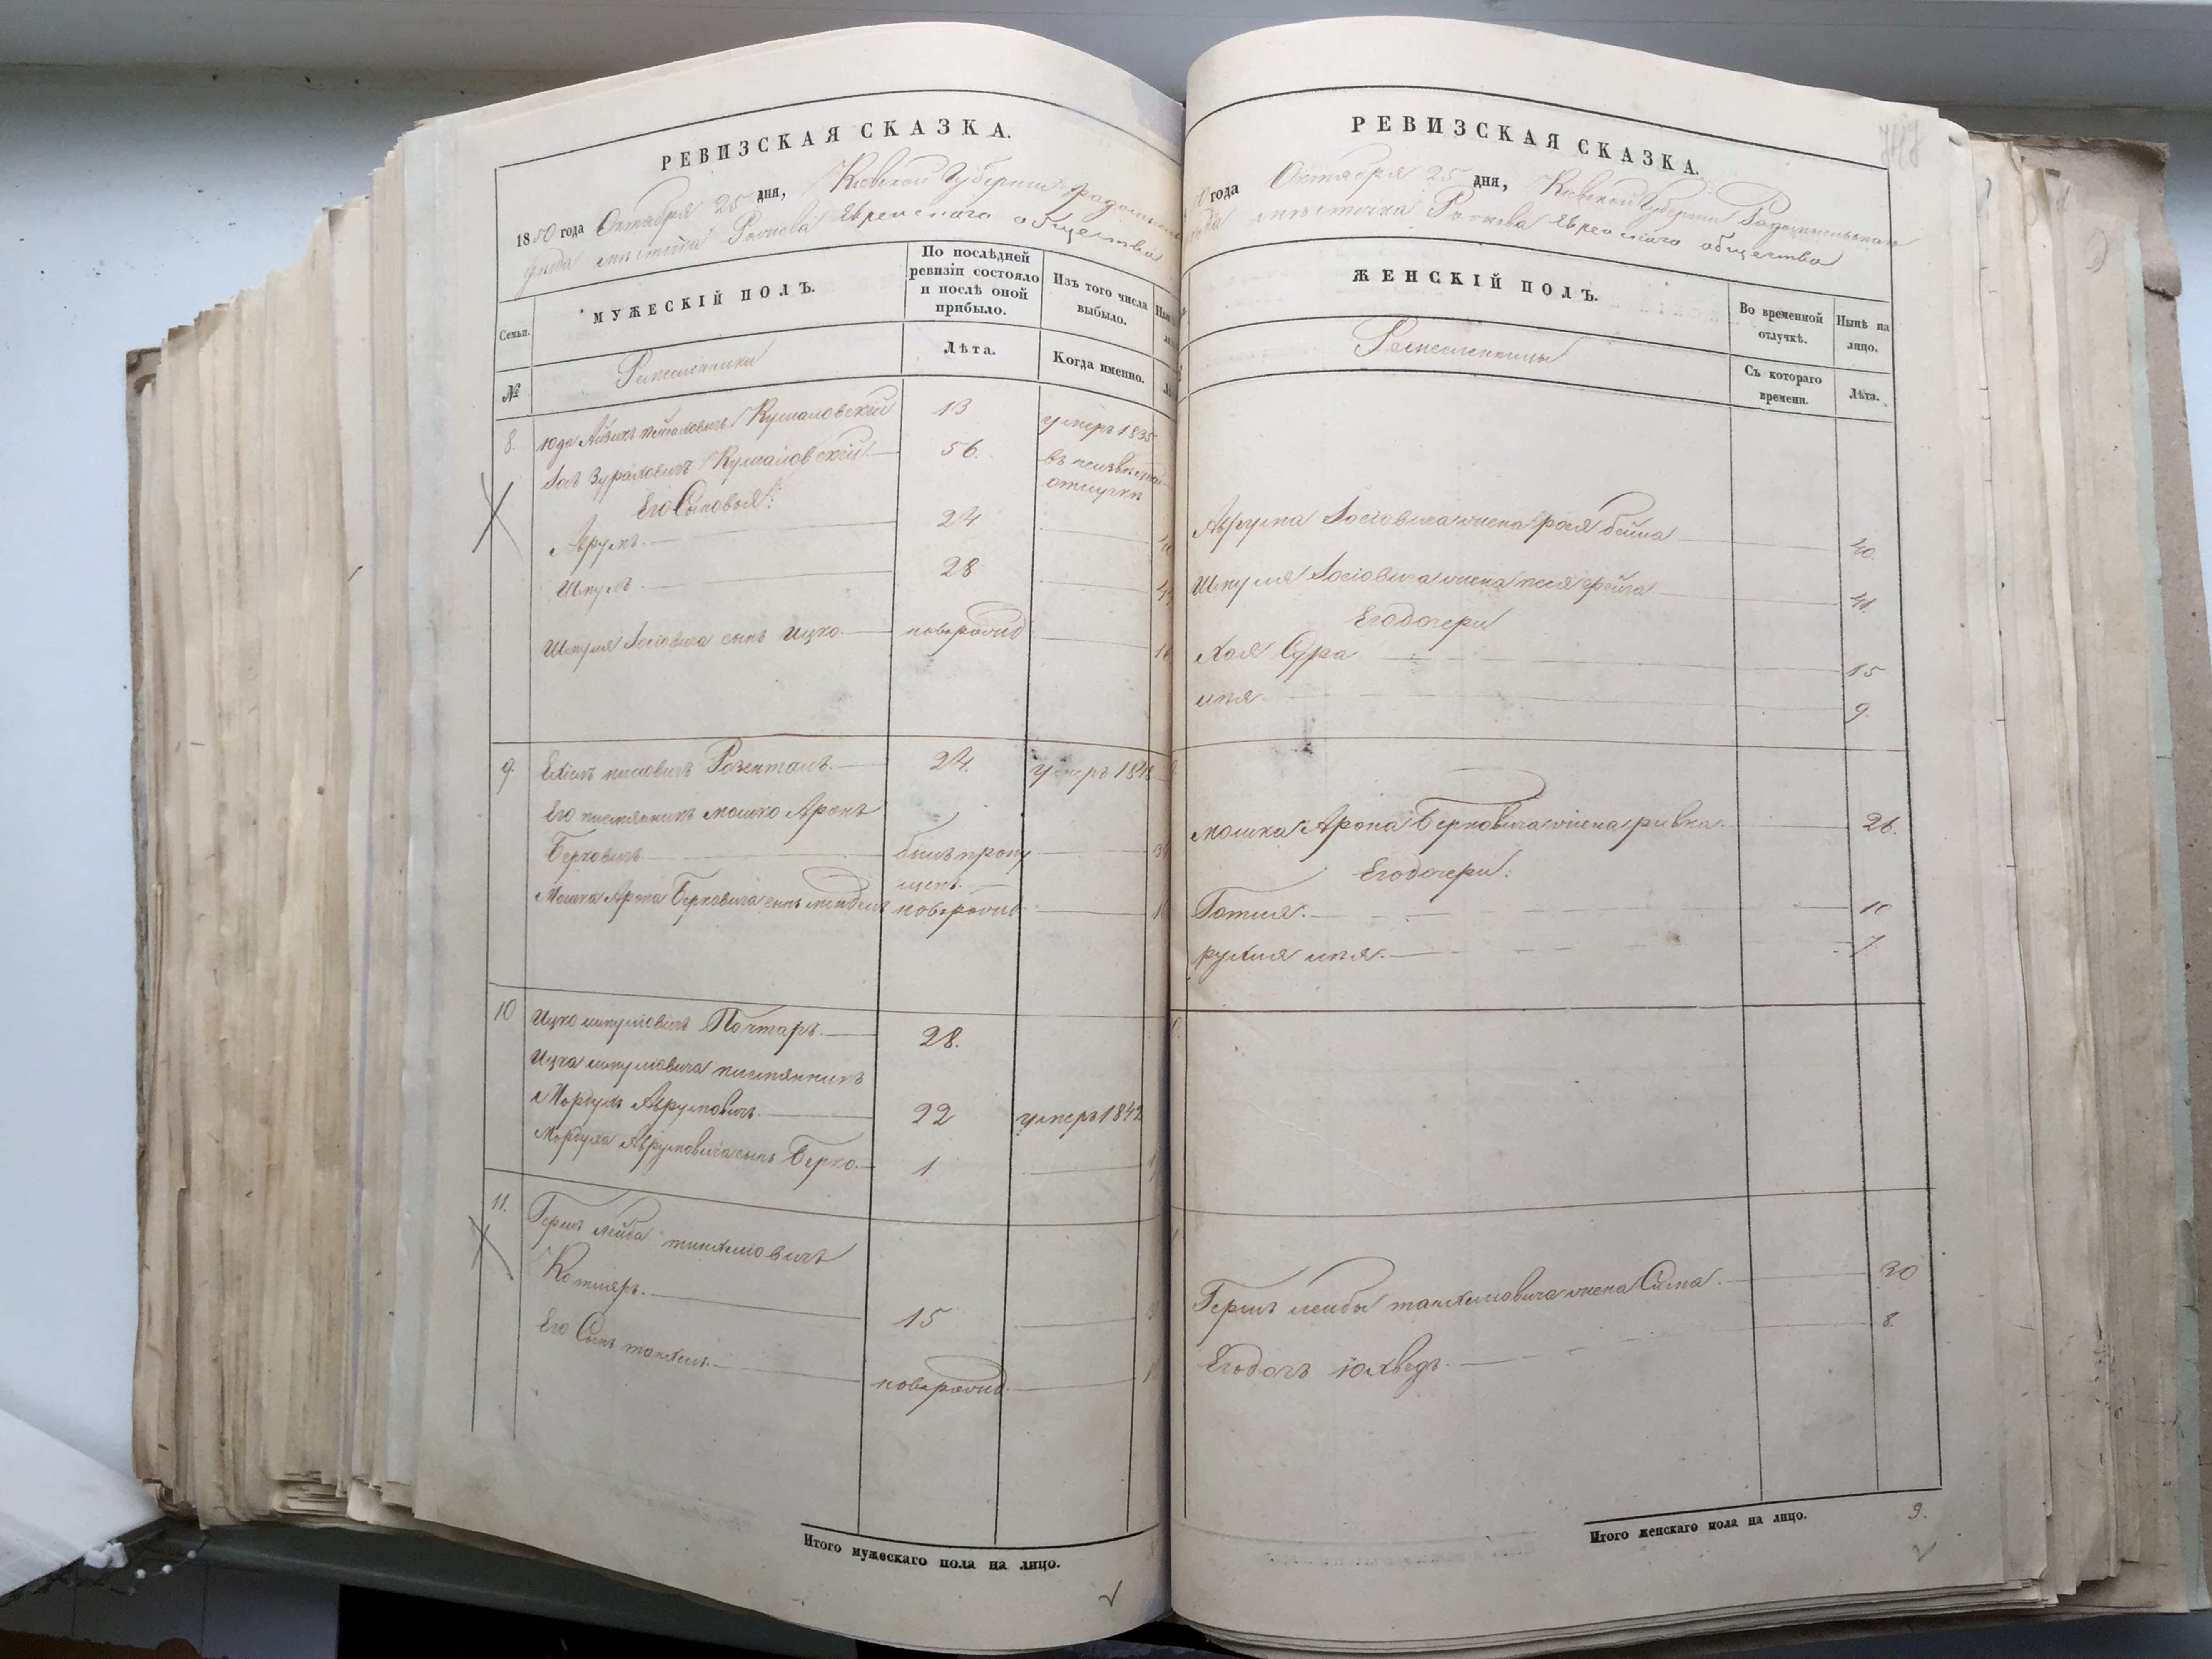 РЕВИЗСКАЯ СКАЗКА.
1850 года Октября 25 дня, Киевской Губернии
уезда местечка Еврейского общества
Семьи.
МУЖЕСКІЙ ПОЛЪ.
По послѣдней ревизіи состояло и послѣ оной прибыло.
Изъ того числа выбыло.
№
Ремесленники
Лѣта.
Когда именно.
8.
Юдя Айзикъ Кумановскій
13
умеръ 1835
Кумановскій
56.
въ неизвестной
отлучке
Его Сыновья:
Аврумъ.
24
Шмуль
28
Шмуля Іосіовича сынъ Ицко.
новорожд
9.
Розенталъ.
24.
умеръ 1848
Его племянникъ Мошко Аронъ
Берковичъ
былъ пропу
щенъ.
Мошка Арона Берковича сынъ Мендель
новорожд
10
Ицко Шмулiовичъ Почтаръ.
28.
Ицка Шмулiовича племянникъ
Аврумовичъ.
22
умеръ 184
Аврумовича сынъ Берко.
1
11.
Гершъ Лейба Танхилiовичъ
Котляръ.
15
Его Сынъ Танхилъ.
новорожд.
Итого мужескаго пола на лицо.
РЕВИЗСКАЯ СКАЗКА.
года Октября 25 дня, Киевской Губерніи Радомысльскаго
местечка Еврейскаго общества
ЖЕНСКІЙ ПОЛЪ.
Во временной отлучкѣ.
Нынѣ на лицо.
Ремесленницы
Съ котораго времени.
Лѣта.
Аврума Іосіовича жена Рося Бейла
40.
Шмуля Іосіовича жена Песя Фейга
41.
Его дочери
Хая Сура
15
9.
Мошка Арона Берковича жена Ривка.
26.
Его дочери:
10
7.
Гершъ Лейбы Танхилiовича жена Сима.
30
Его дочь Іохведъ.
8.
Итого женскаго пола на лицо.
9.